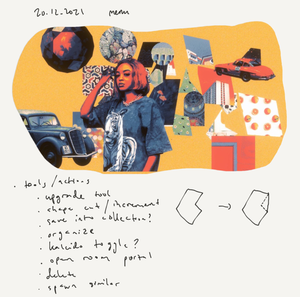 20.12.2021 menu
. tools/actions
. upgrade tool
. shape cut/increment
. save into collection?
. organize
. kaleido toggle?
. open room portal
. delete
. spawn similar